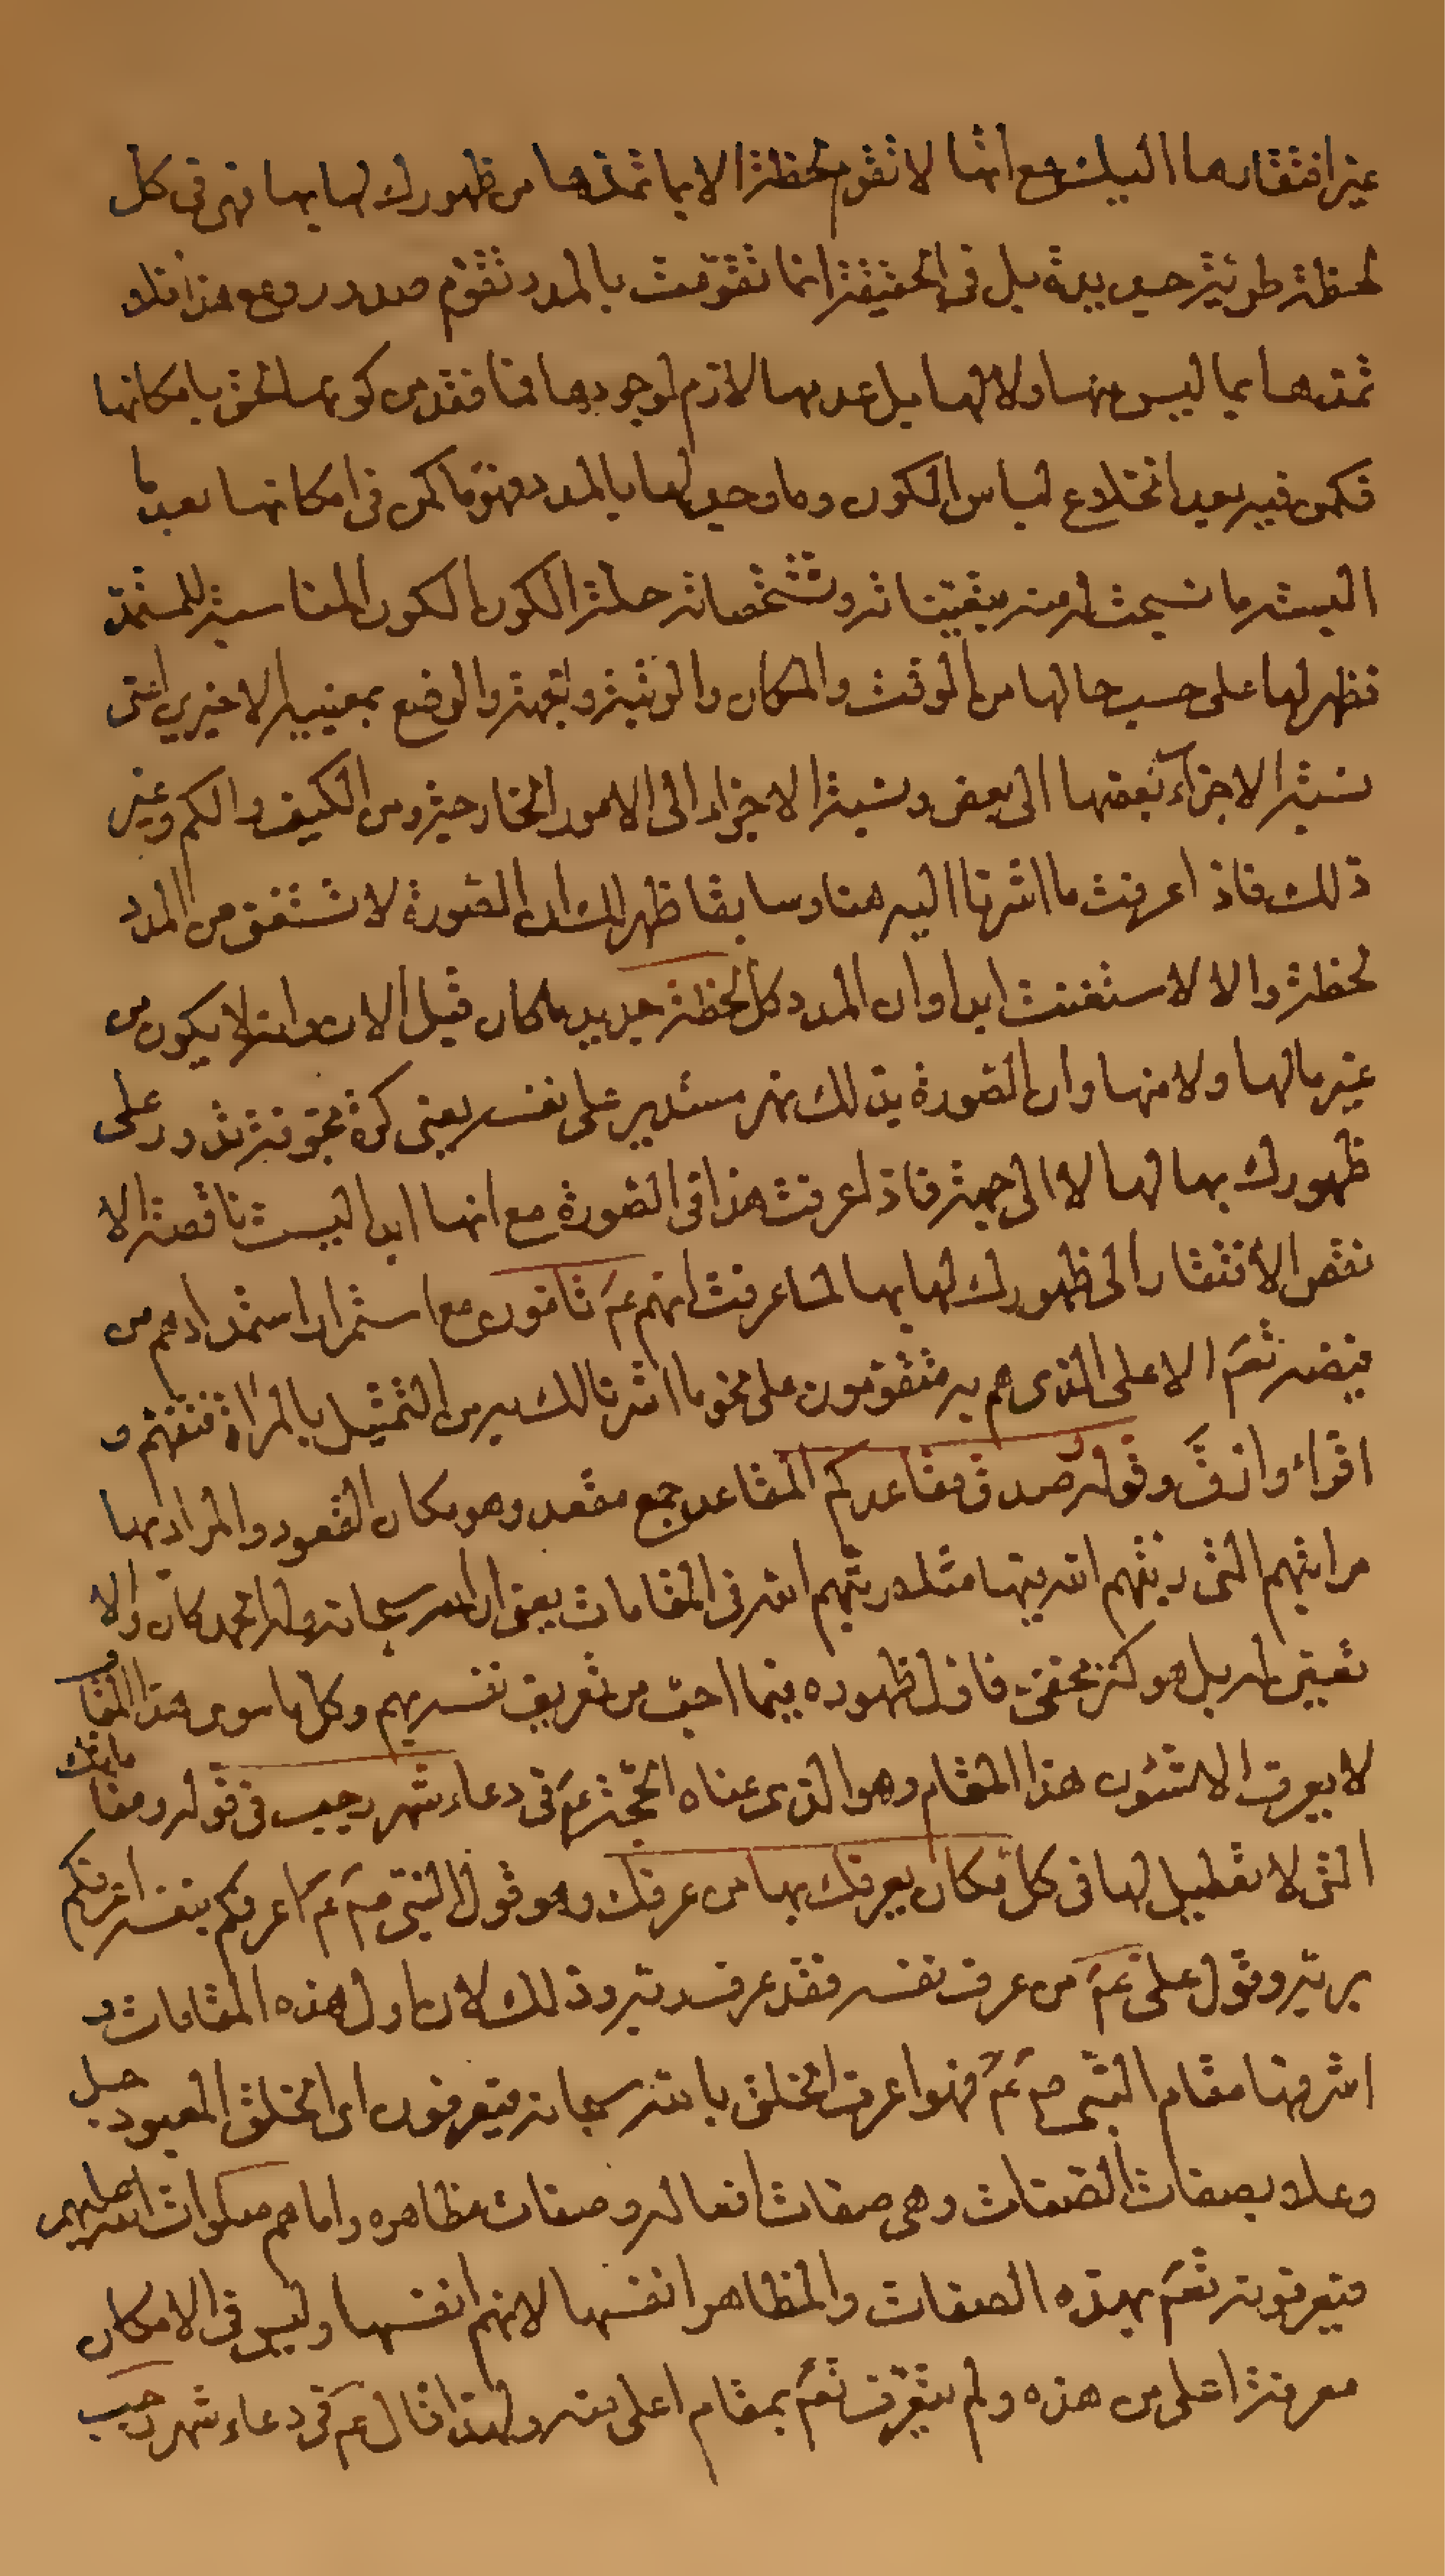 غير افتقارها اليك مع انها لا تقوم لحظة الا بما تمدها من ظهورك لها بها فهي في كل
لحظة طرية جديدة بل في الحقيقة انما تقومت بالمدد تقوم صدور ومع هذا فلا
تمدها بما ليس منها ولا لها بل عدمها لازم لوجودها فما فقد من كونها لحق بامكانها
فكمن فيه بعد انخلاع لباس الكون وما وجد لها بالمدد فهو ما كمن في امكانها بعد ما
البسته ما نسجت له منه بتعيناته وتشخصاته حلة الكون الكون المناسبة للمستمد
فظهر لها على حسب حالها من الوقت والمكان والرتبة والجهة والوضع بمعنييه الاخيرين اعني
نسبة الاجزاء بعضها الى بعض ونسبة الاجزاء الى الامور الخارجية ومن الكيف والكم وغير
ذلك فاذا عرفت ما اشرنا اليه هنا وسابقا ظهر لك ان الصورة لا تستغني من المدد
لحظة والا لاستغنت ابدا وان المدد كل لحظة جديد ما كان قبل الان وانه لا يكون من
غير ما لها ولا منها وان الصورة بذلك نهر مستدير على نفسه يعني كرة مجوفة تدور على
ظهورك بها لها لا الى جهة فاذا عرفت هذا في الصورة مع انها ابدا ليست ناقصة الا
نقص الافتقار الى ظهورك لها بها لما عرفت انهم ع تامون مع استمرار استمدادهم من
فيضه تعم الاعلى الذي هم به متقومون على نحو ما اشرنا لك به من التمثيل بالمراة فتفهم و
اقراء وارق وقوله صدق مقاعدكم المقاعد جمع مقعد وهو مكان القعود والمراد بها
مراتبهم التي رتبهم الله بها مثل رتبهم الله في المقامات يعني ان الله سبحانه وله الحمد كان ولا
تعين له بل هو كنز مخفي فاول ظهوره بما احب من تعريف نفسه بهم وكل ما سوى هذا المقام
لا يعرف الا لشئون هذا المقام وهو الذي عناه الحجة ع في دعاء شهر رجب في قوله ومقاماتك
التي لا تعطيل لها في كل مكان يعرفك بها من عرفك وهو قول النبي صم عم اعرفكم بنفسه اعرفكم
بربه وقول علي عم من عرف نفسه فقد عرف ربه وذلك لان اول هذه المقامات و
اشرفها مقام النبي صم عم فهو اعرف الخلق بالله سبحانه فيعرفون اي الخلق المعبود جل
وعلا بصفات الصفات وهي صفات افعاله وصفات مظاهره واما هم صلوات الله عليهم
فيعرفونه تعم بهذه الصفات والمظاهر انفسها لانهم انفسها وليس في الامكان
معرفة اعلى من هذه ولم يتعرف تعم بمقام اعلى منه ولهذا قال عم في دعاء شهر رجب